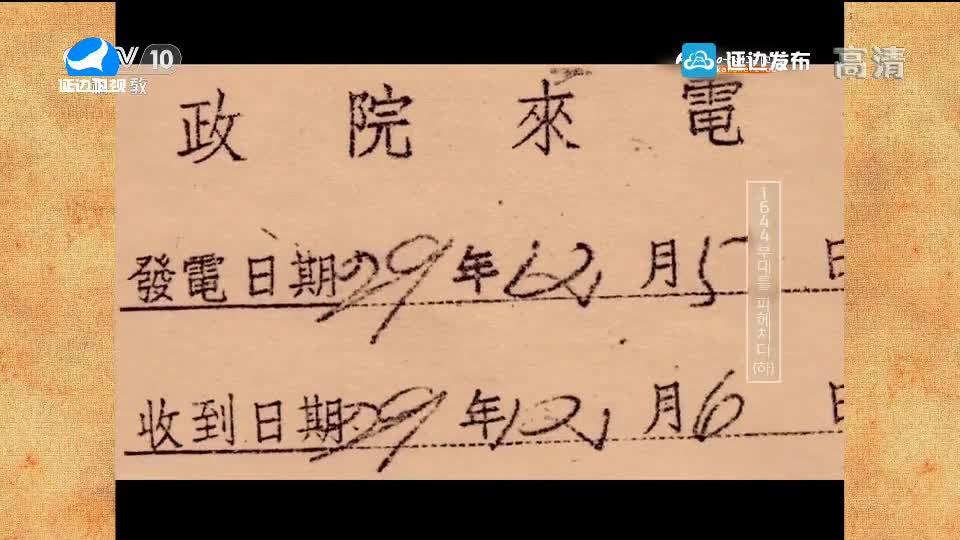 10
延边卫视
教
延边发布
高清
政院來電
發電日期29年12月5日
收到日期29年12月6日
1644부대를 파헤치다(하)